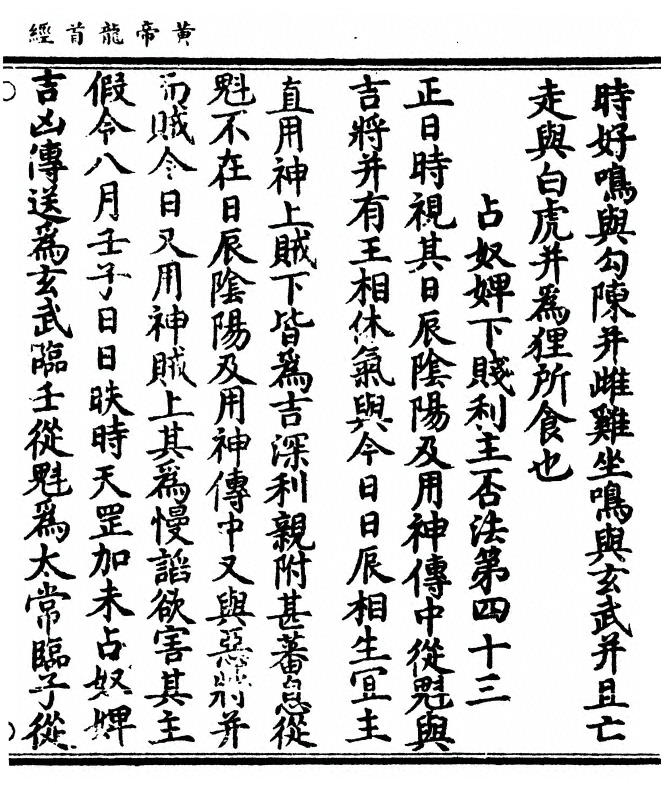 黃帝龍首經
時好鳴與勾陳并雌雞坐鳴與玄武并且亡
走與白虎并為狸所食也
占奴婢下賤利主否法第四十三
正日時視其日辰陰陽及用神傳中從魁與
吉將并有王相休氣與今日日辰相生宜主
直用神上賊下皆為吉深利親附甚蕃息從
魁不在日辰陰陽及用神傳中又與惡將并
而賊今日又用神賊上其為慢謟欲害其主
假令八月壬子日日昳時天罡加未占奴婢
吉凶傳送為玄武臨壬從魁為太常臨子從